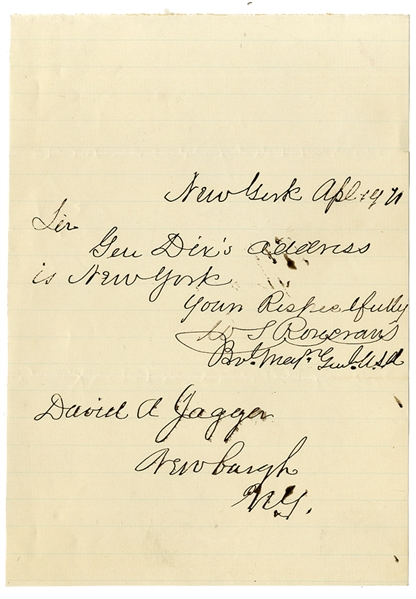 New York Apl 19 71
Sir
Gen Dix's address
is New York
Yours Respectfully
W S Rosecrans
Bvt. Maj. Genl. U.S.A
David A Jagger
Newburgh
N.Y.